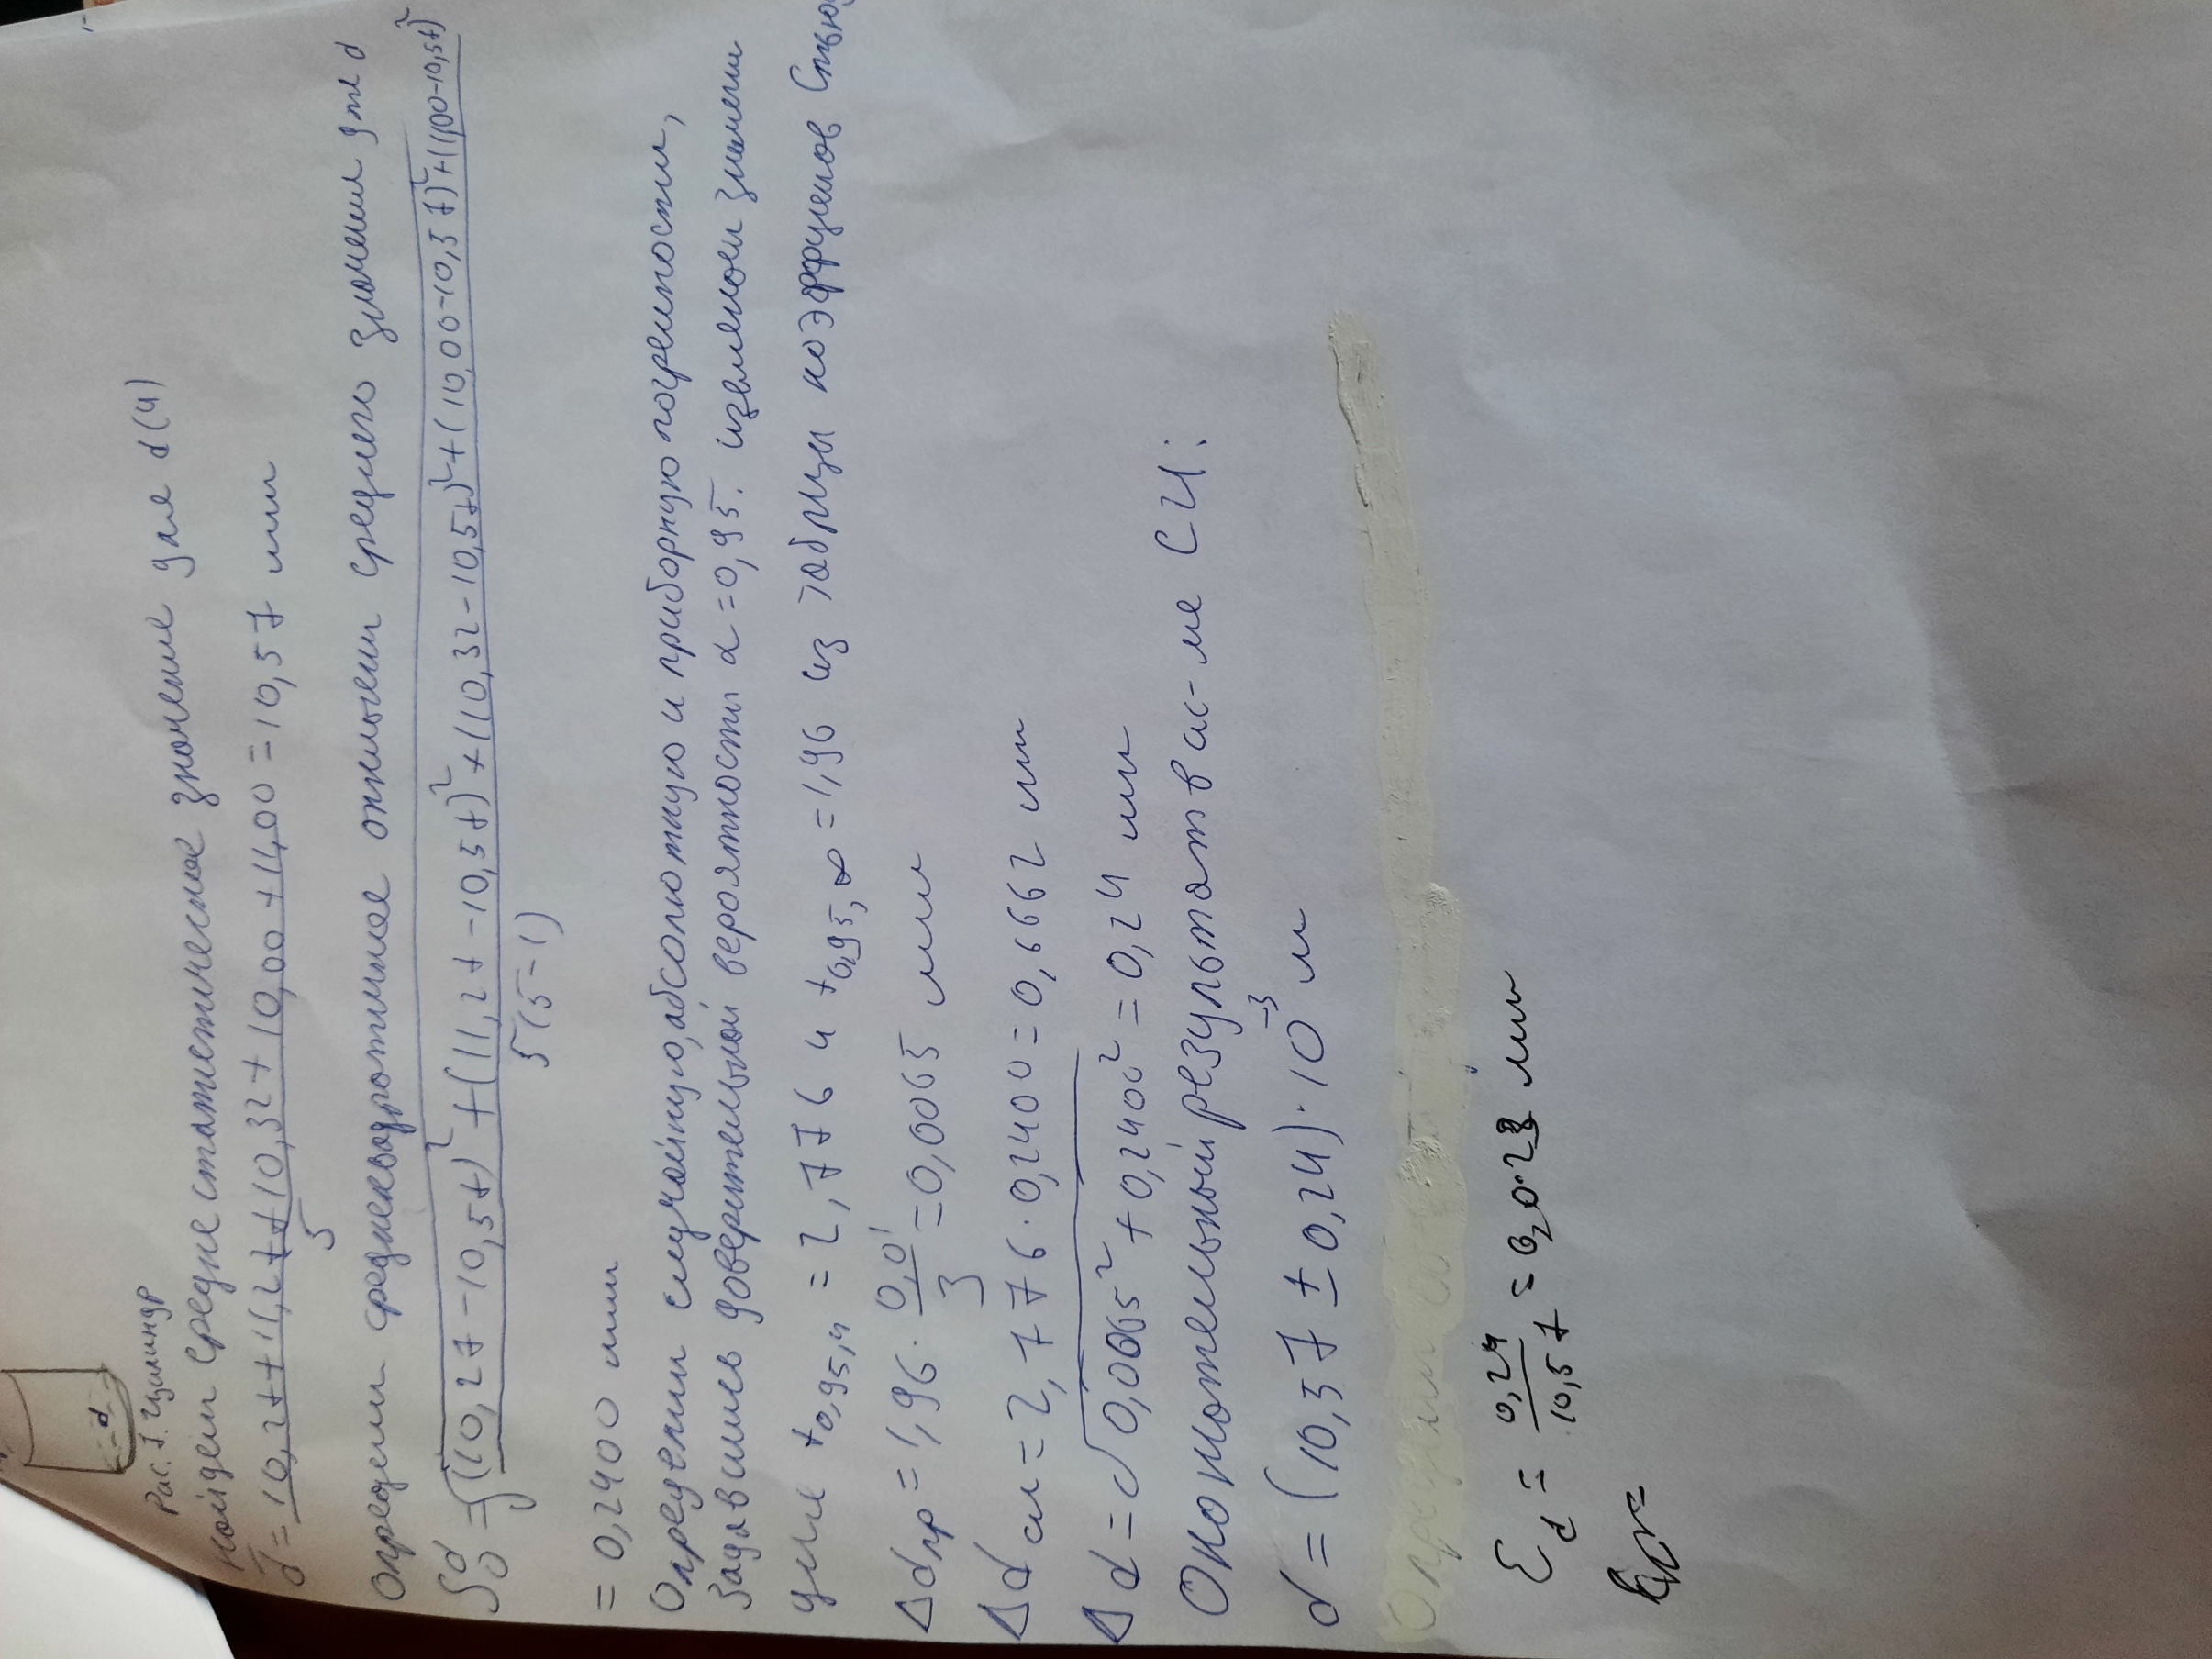 d
Рис. 1. Цилиндр
Найдем средне статистическое значение для d (4)
d̅ = (10,27 + 11,27 + 10,32 + 10,00 + 11,00) / 5 = 10,57 мм
Определим среднеквадратичное отклонени среднего значения для d
S₀ᵈ = √((10,27 - 10,57)² + (11,27 - 10,57)² + (10,32 - 10,57)² + (10,00 - 10,57)² + (11,00 - 10,57)²) / 5(5-1)
= 0,2400 мм
Определим случайную, абсолютную и приборную погрешности,
Задавшись доверительной вероятности α = 0,95. значени
для t₀,₉₅,₄ = 2,776 и t₀,₉₅,∞ = 1,96 из таблицы Стью
Δdпр = 1,96 · 0,01 / 3 = 0,0065 мм
Δdсл = 2,776 · 0,2400 = 0,6662 мм
Δd = √(0,0065² + 0,2400²) = 0,24 мм
результат в СИ:
d = (10,57 ± 0,24) · 10⁻³ м
Определим
εd = 0,24 / 10,57 = 0,023 мм